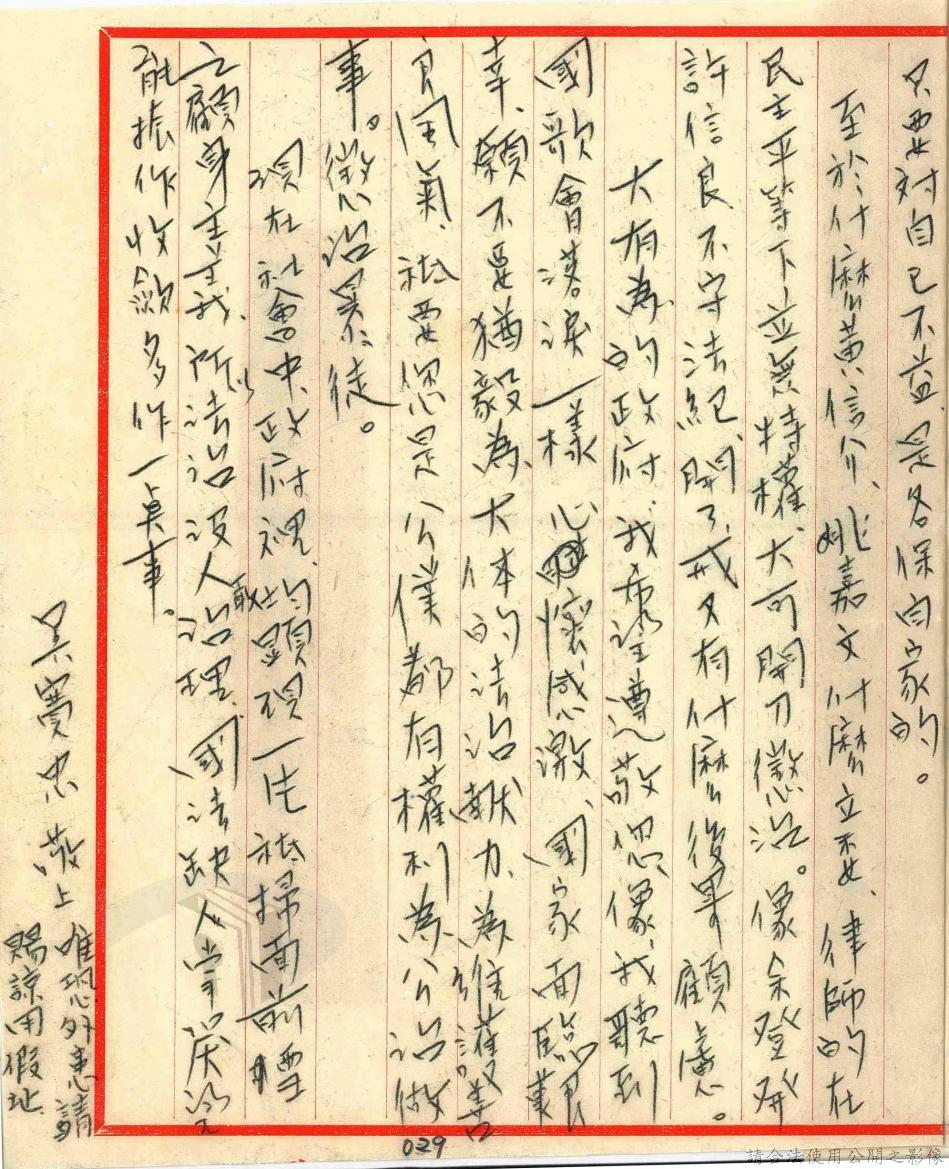 只要对自己不益、是各保自家的。
至於什麼黃信介、姚嘉文什麼立委、律師的在
民主平等下並無特權、大可開刀懲治。像余登發
許信良不守法紀、開了戒又有什麼後果顧慮。
大有為的政府、我承認尊敬您像、我聽到
國歌會落淚一樣 心懷感激、國家面臨艱
辛、願不要猶毅為大体的法治献力、為維護善
良風氣、祇要您是公僕都有權利為公治做
事。懲治暴徒。
現在社會中、政府裡、的顯現一片祇掃面前
之顧身主義、所以法治沒人敢治理、國法缺人掌
能振作收斂多作一点事。
吳寶忠 敬上
唯恐外患請
賜諒用假址
029
請合法使用公開之影像